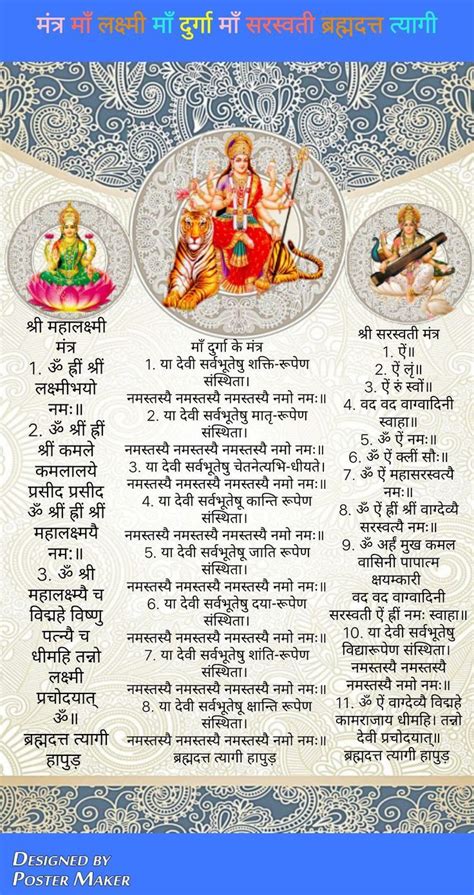 मंत्र माँ लक्ष्मी माँ दुर्गा माँ सरस्वती ब्रह्मदत्त त्यागी
श्री महालक्ष्मी
मंत्र
1. ॐ ह्रीं श्रीं
लक्ष्मीभयो
नमः॥
2. ॐ श्रीं ह्रीं
श्रीं कमले
कमलालये
प्रसीद प्रसीद
ॐ श्रीं ह्रीं श्रीं
महालक्ष्मयै
नम:॥
3. ॐ श्री
महालक्ष्म्यै च
विद्महे विष्णु
पत्न्यै च
धीमहि तन्नो
लक्ष्मी
प्रचोदयात्
ॐ॥
ब्रह्मदत्त त्यागी
हापुड़
माँ दुर्गा के मंत्र
1. या देवी सर्वभूतेषु शक्ति-रूपेण
संस्थिता।
नमस्तस्यै नमस्तस्यै नमस्तस्यै नमो नमः॥
2. या देवी सर्वभूतेषु मातृ-रूपेण
संस्थिता।
नमस्तस्यै नमस्तस्यै नमस्तस्यै नमो नमः॥
3. या देवी सर्वभूतेषु चेतनेत्यभि-धीयते।
नमस्तस्यै नमस्तस्यै नमस्तस्यै नमो नमः॥
4. या देवी सर्वभूतेषू कान्ति रूपेण
संस्थिता।
नमस्तस्यै नमस्तस्यै नमस्तस्यै नमो नमः॥
5. या देवी सर्वभूतेषू जाति रूपेण
संस्थिता।
नमस्तस्यै नमस्तस्यै नमस्तस्यै नमो नमः॥
6. या देवी सर्वभूतेषु दया-रूपेण
संस्थिता।
नमस्तस्यै नमस्तस्यै नमस्तस्यै नमो नमः॥
7. या देवी सर्वभूतेषु शांति-रूपेण
संस्थिता।
नमस्तस्यै नमस्तस्यै नमस्तस्यै नमो नमः॥
8. या देवी सर्वभूतेषू क्षान्ति रूपेण
संस्थिता।
नमस्तस्यै नमस्तस्यै नमस्तस्यै नमो नमः॥
ब्रह्मदत्त त्यागी हापुड़
श्री सरस्वती मंत्र
1. ऐं॥
2. ऐं लृं॥
3. ऐं रुं स्वों॥
4. वद वद वाग्वादिनी
स्वाहा॥
5. ॐ ऐं नमः॥
6. ॐ ऐं क्लीं सौः॥
7. ॐ ऐं महासरस्वत्यै
नमः॥
8. ॐ ऐं ह्रीं श्रीं वाग्देव्यै
सरस्वत्यै नमः॥
9. ॐ अर्हं मुख कमल
वासिनी पापात्म
क्षयम्कारी
वद वद वाग्वादिनी
सरस्वती ऐं ह्रीं नमः स्वाहा॥
10. या देवी सर्वभूतेषु
विद्यारूपेण संस्थिता।
नमस्तस्यै नमस्तस्यै
नमस्तस्यै नमो नमः॥
11. ॐ ऐं वाग्देव्यै विद्महे
कामराजाय धीमहि। तन्नो
देवी प्रचोदयात्॥
ब्रह्मदत्त त्यागी हापुड़
DESIGNED BY
POSTER MAKER